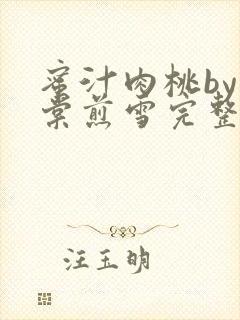 蜜汁肉桃by
棠煎雪完整
汪玉明